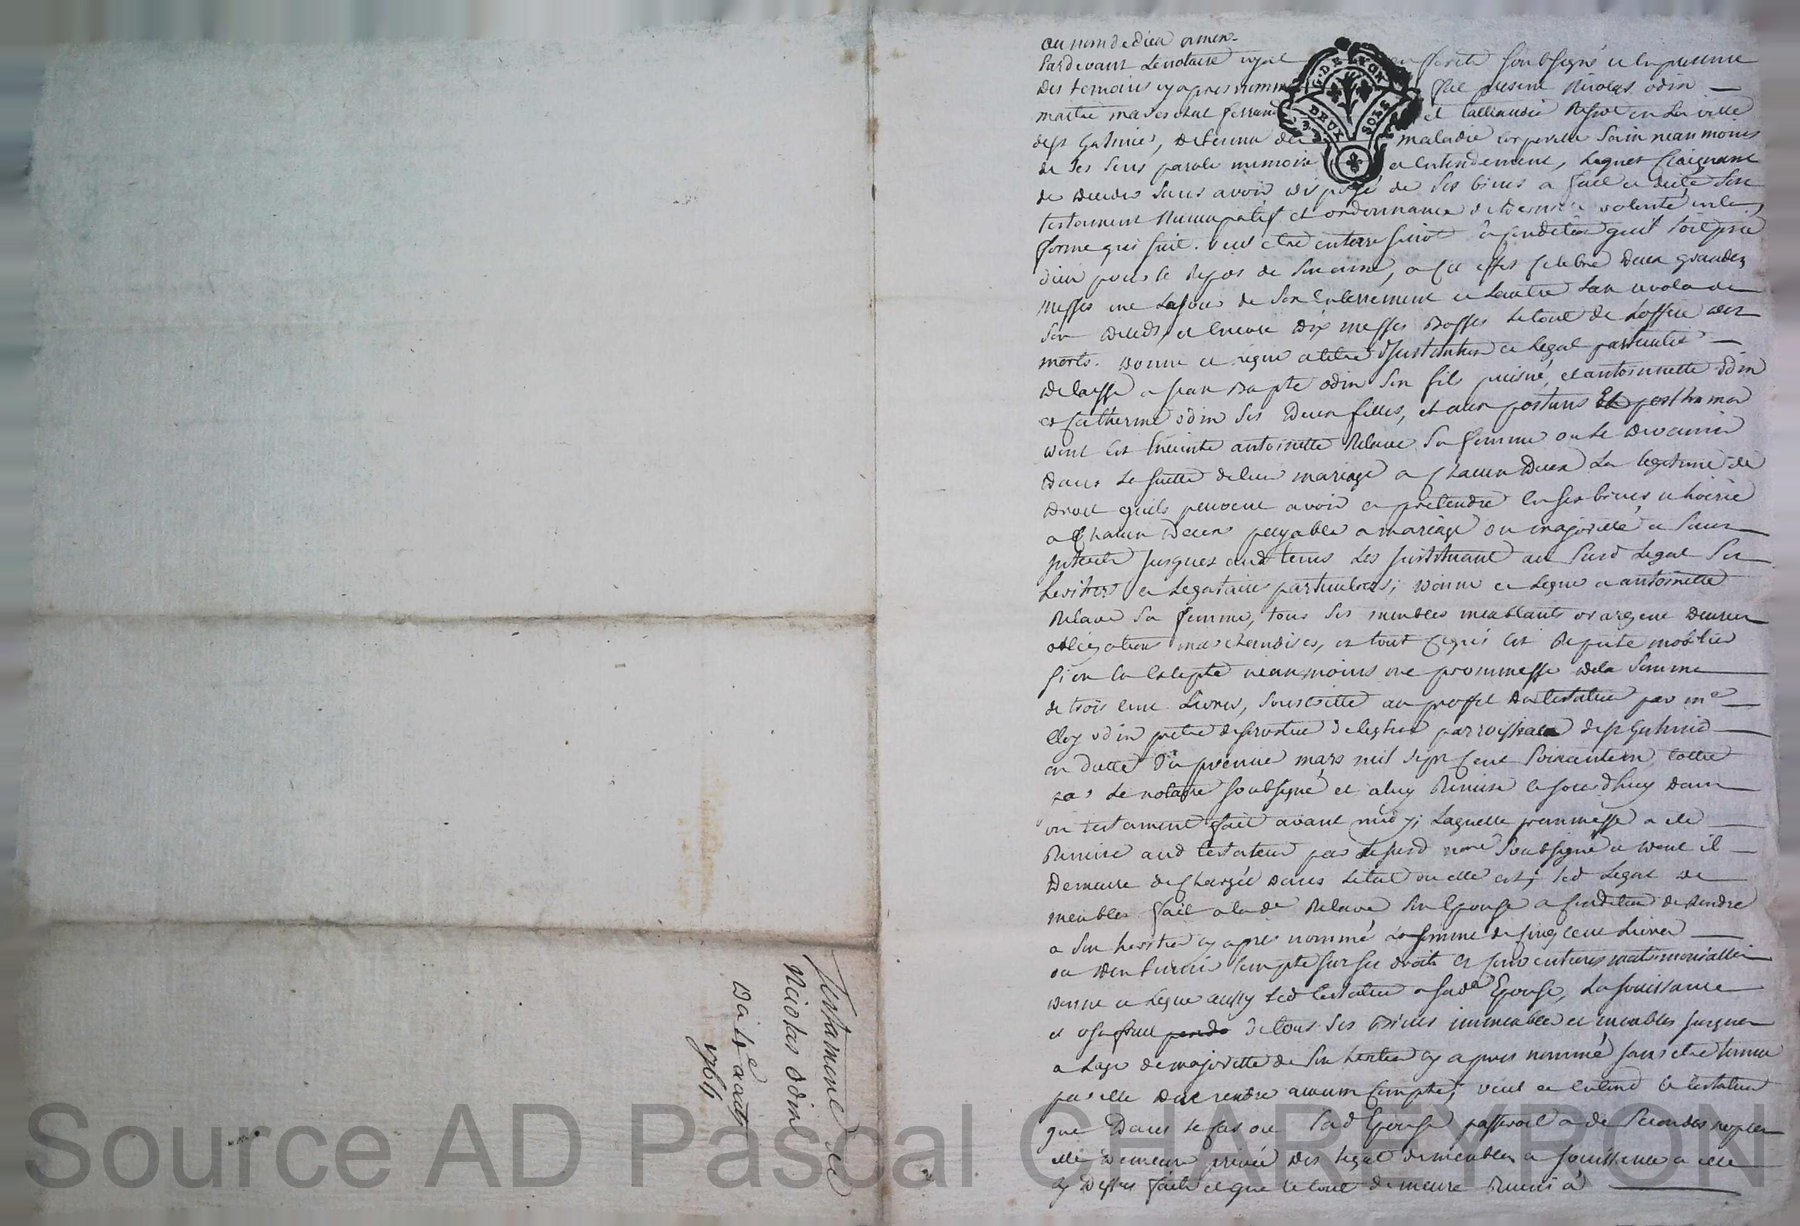 au nom de dieu amen.
Pardevant Le notaire royal en forets soubsigné et en presence
des temoins cy apres nommés fut present Nicolas odin
maitre mareschal ferrant et taillandier Resid. en La ville
de st Galmier, detenu de maladie corporelle sain neanmoins
de ses sens parole memoire et entendement, Lequel craignant
de deceder sans avoir disposé de ses biens a fait et dicté son
testament Nuncupatif et ordonnance de derniere volonté en la
forme qui suit. veut etre enterré a condition quil soit prié
dieu pour le Repos de son ame, a cet effet celebré deux grandes
Messes une Le jour de son Enterrement et Lautre Lan revolu de
son deceds et Encore dix messes Basses Le tout de Loffice des
morts. donne et legue a titre d'Institution et Legat particulier
de laisse a jean Bapte odin son fils puisné, et antoinette odin
et Catherine odin ses deux filles, et aux posthumes Et posthume
dont Est Enceinte antoinette Relave Sa femme ou Le deviendra
dans La suitte de leur mariage a chacun deux La legitime de
droit quils peuvent avoir et pretendre en ses biens et hoirie
a chacun deux payable a mariage ou majorité et sans
Interets jusques aud tems Les Instituant au susd Legat ses
heritiers et Legataires particuliers; donne et Legue a antoinette
Relave sa femme, tous ses meubles meublants or argent denrées
obligations marchandises, et tout ce qui Est Reputé mobilier
si on En Excepte neanmoins une prommesse de la somme
de trois cent Livres, souscritte au proffit du testateur par me
Eloy odin pretre desservant de leglise parroissialle de st Galmier
en datte du premier mars mil sept cent soixante un cottée
par Le notaire soubsigné et a luy Remise ce jourdhuy dans
un testament fait avant midy; Laquelle prommesse a eté
Remise aud testateur par Le susd nore soubsigné et dont il
demeure dechargé dans Letat ou elle est; led Legat de
meubles fait a lade Relave son Epouse a condition de Rendre
a son heritier cy apres nommé La somme de cinq cent Livres
ou den tenir compte sur ses droits et conventions matrimonialles
donne et Legue aussy Led testateur a sade Epouse, La jouissance
et usufruit pendt de tous ses Biens immeubles et meubles jusques
a Lage de majorité de son heritier cy apres nommé sans etre tenue
par elle den rendre aucun compte; veut et entend le testateur
que dans le cas ou Lad Epouse passeroit a de secondes nopces
elle demeure privée des legat de meubles et jouissance a elle
cy dessus faits et que le tout demeure Remis a
2
Testament de
Nicolas odin
du 1e aout
1764
G. DE LYON
DEUX SOLS
Source AD Pascal CHAREYRON